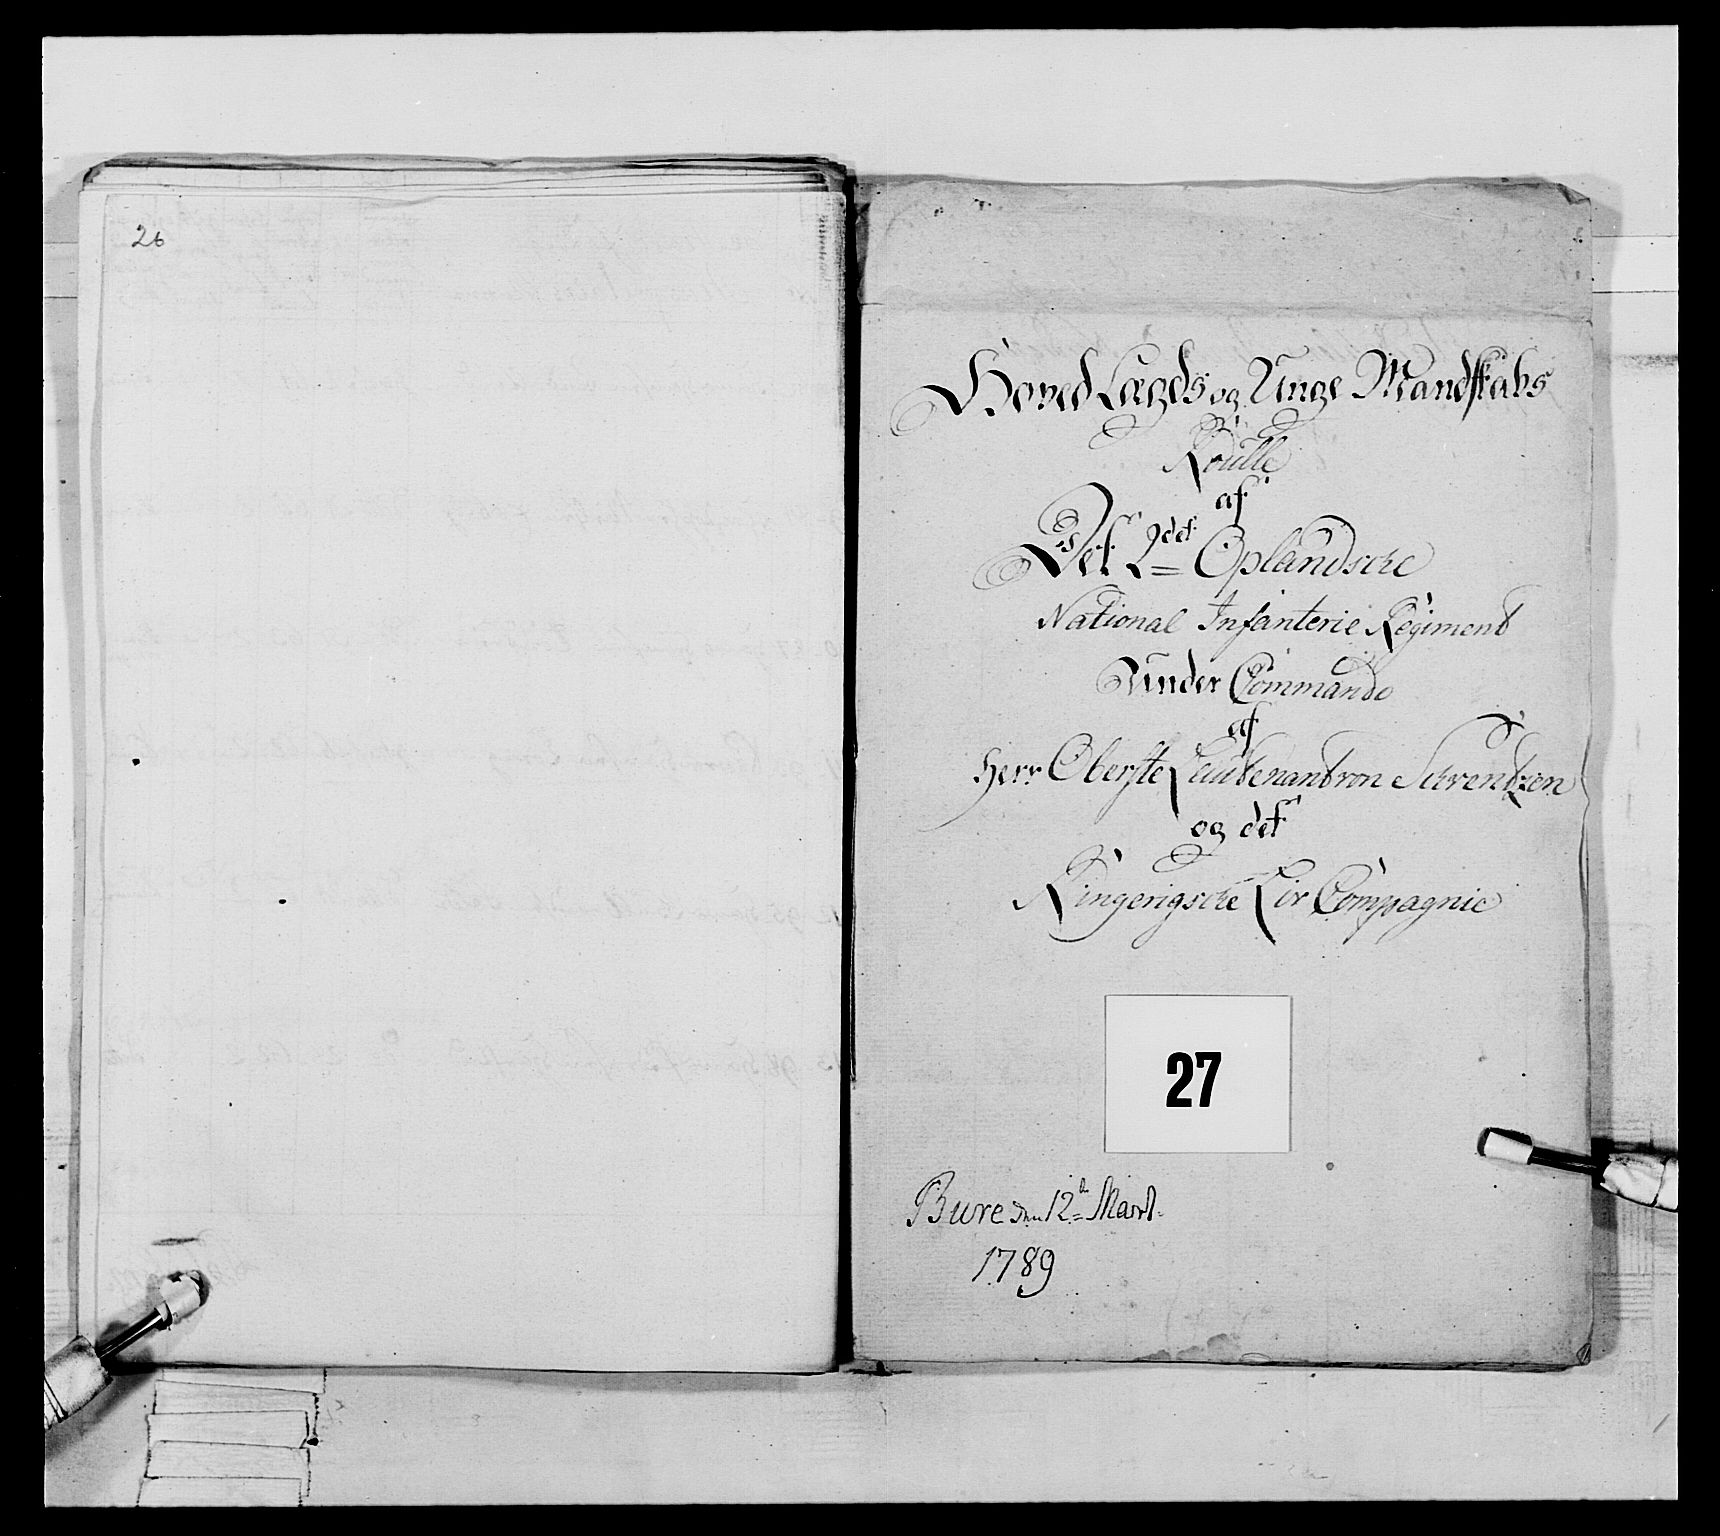 26
Hoved Lægds og Unge Mandskabs
Roulle
af
Det 2det Oplandsche
National Infanterie Regiment
Under Commando
af
Herr Oberste Leutenant von
og det
Ringerigsche Liv Compagnie
27
Bure den 12te Mart.
1789